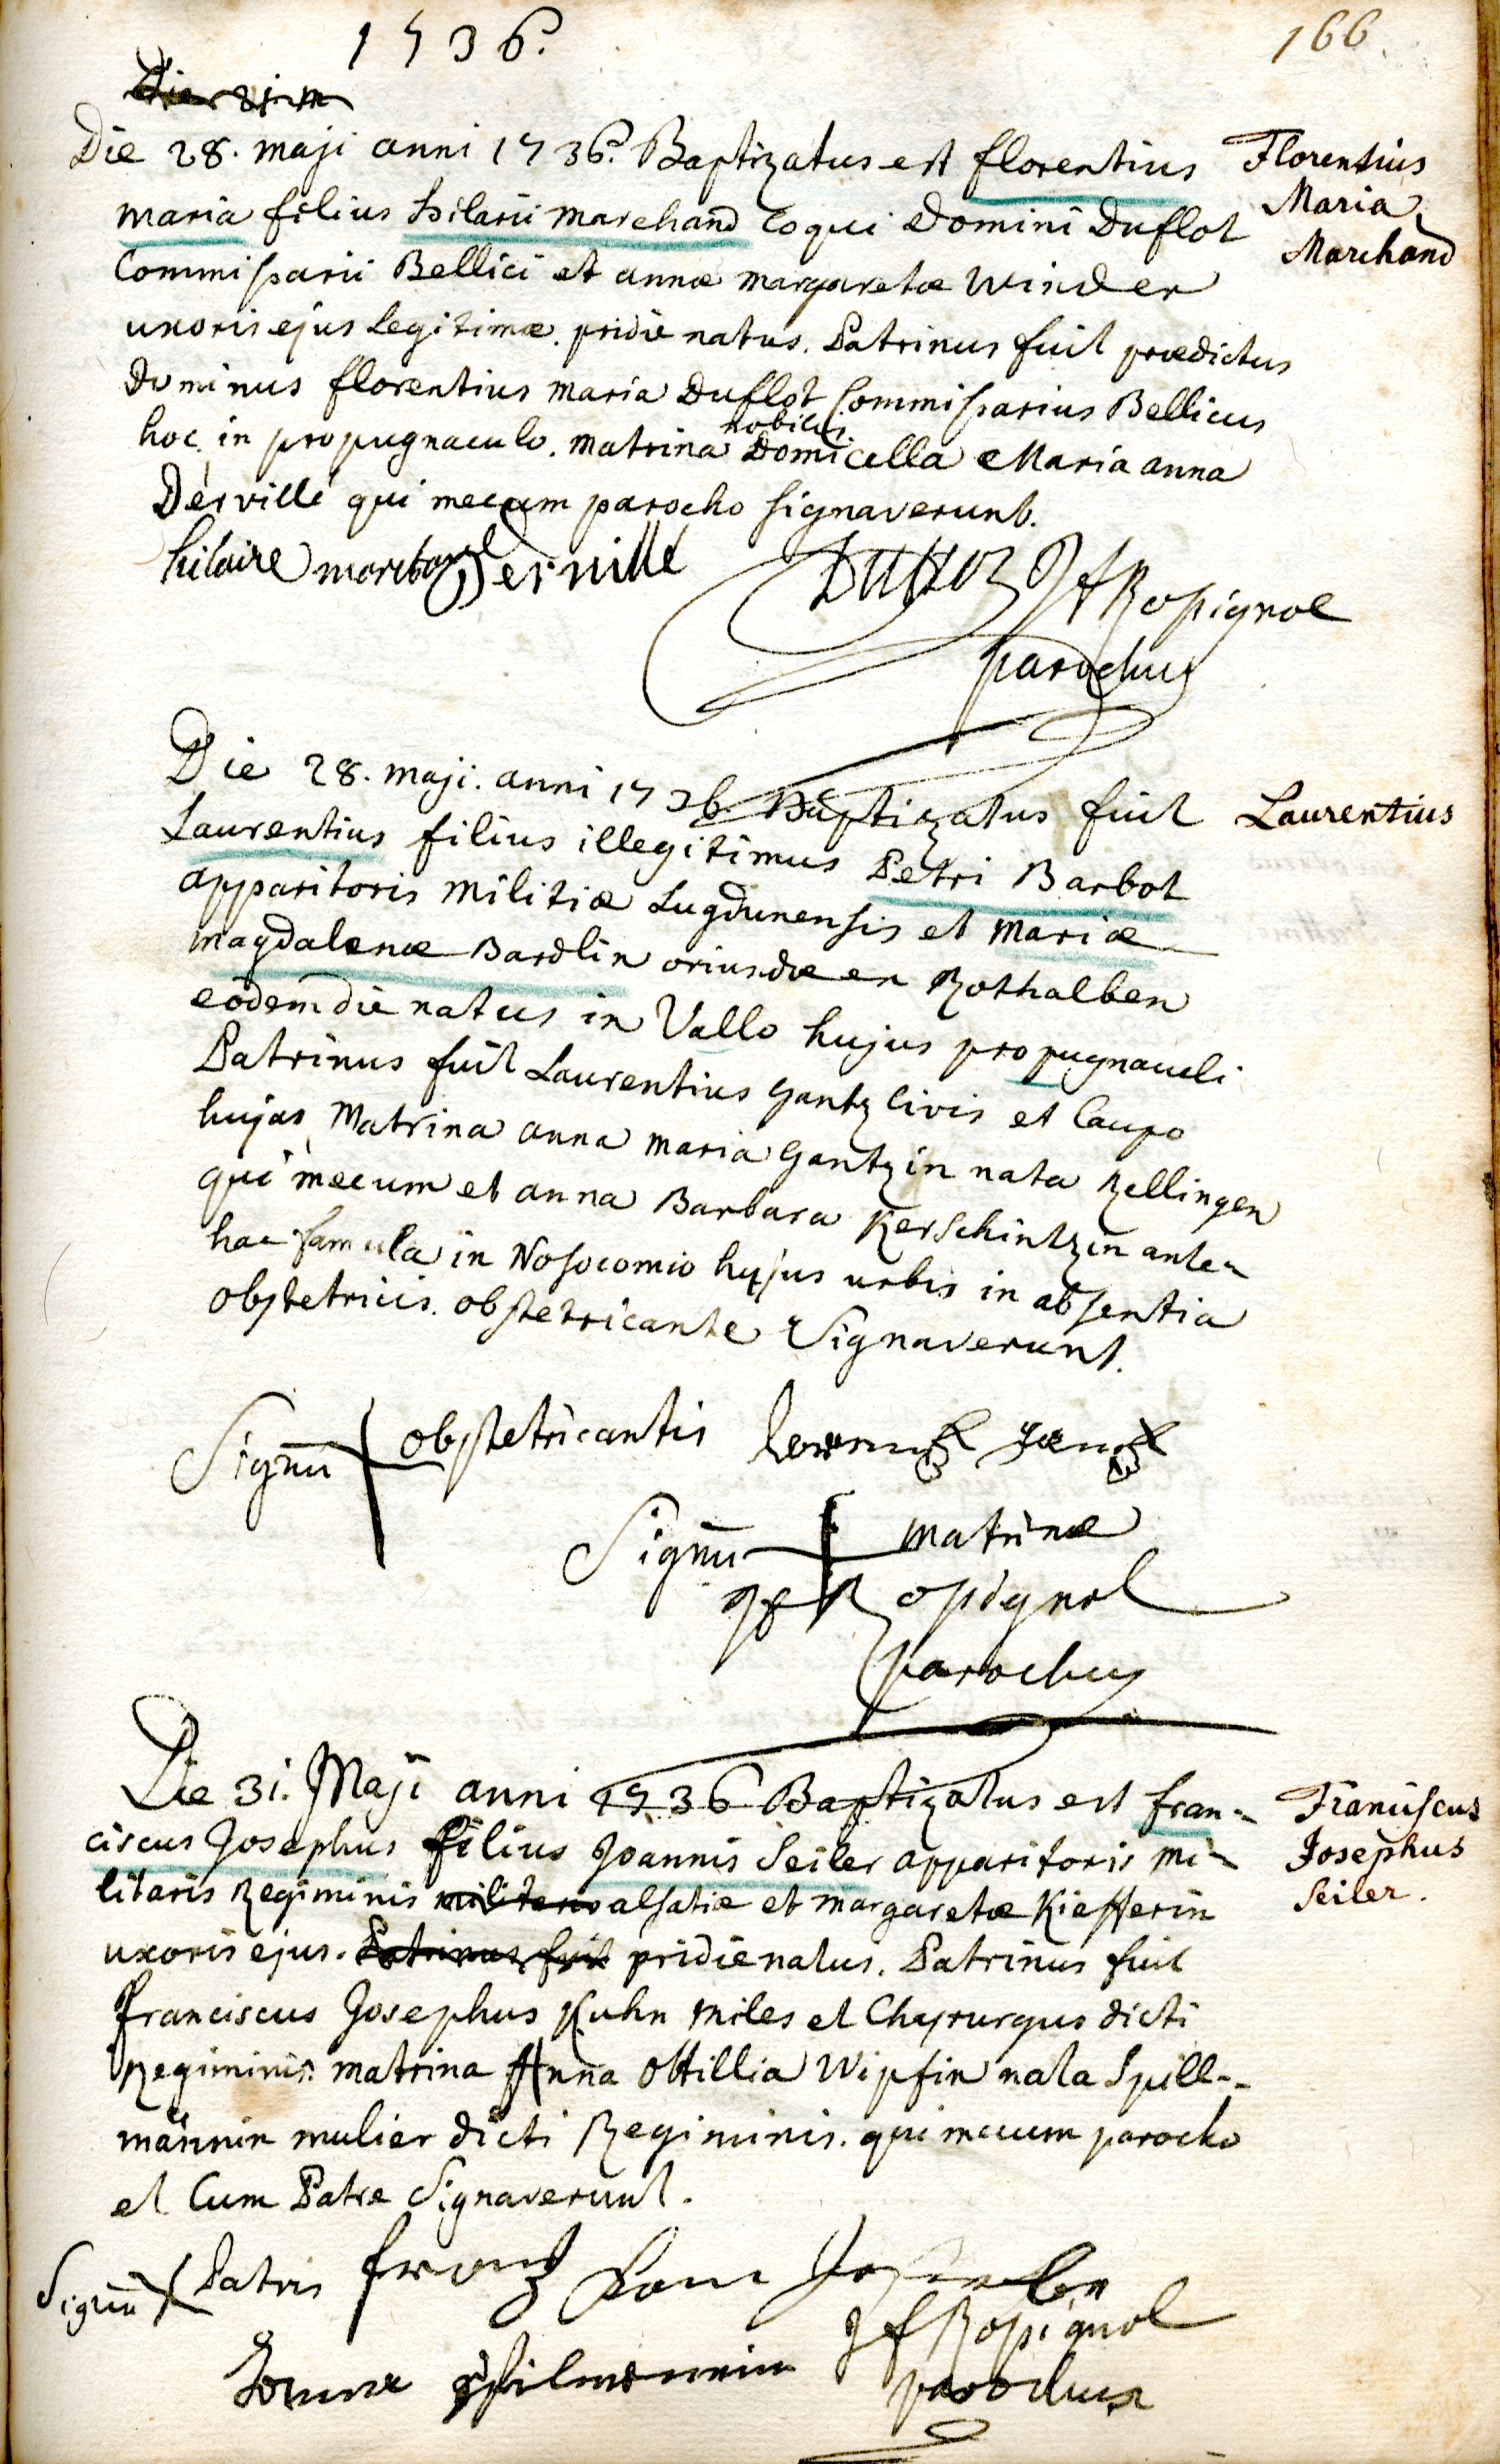 1736.
166.
Die 28. maji anni 1736. Baptizatus est florentius
Florentius
Maria
Marchand
maria filius hilarii marchand Coqui Domini Duflot
Commissarii Bellici et annæ margaretæ Winder
uxoris ejus legitimæ. pridie natus. Patrinus fuit prædictus
Dominus florentius maria Duflot Commissarius Bellicus
hoc in propugnaculo. matrina nobilis Domicella Maria anna
Derville qui mecum parocho signaverunt.
hilaire marchand Derville Duflot JF Rossignol
parochus
Die 28. maji. anni 1736. Baptizatus fuit
Laurentius
Laurentius filius illegitimus Petri Barbot
apparitoris militiæ Lugdunensis et mariæ
magdalenæ Bardlin oriundæ ex Rothalben
eodem die natus in Vallo hujus propugnaculi
Patrinus fuit Laurentius Gantz Civis et Caupo
hujas, Matrina anna maria Gantzin nata Kellingen
qui mecum et anna Barbara Kerschintzin ante-
hac famula in Nosocomio hujus urbis in absentia
obstetricis obstetricante Signaverunt.
Signū obstetricantis
Signū matrinæ
JF Rossignol
parochus
Die 31. Maji anni 1736 Baptizatus est fran-
Franciscus
Josephus
Seiler.
ciscus Josephus filius Joannis Seiler apparitoris mi-
litaris Regiminis militaris alsatiæ et margaretæ Kiefferin
uxoris ejus. Patrinus fuit pridie natus. Patrinus fuit
franciscus Josephus Kuhn miles et Chyrurgus dicti
Regiminis. matrina Anna Ottillia Wipfin nata Spill-
männin mulier dicti Regiminis. qui mecum parocho
et Cum Patre Signaverunt.
Signū Patris frantz
JF Rossignol
parochus